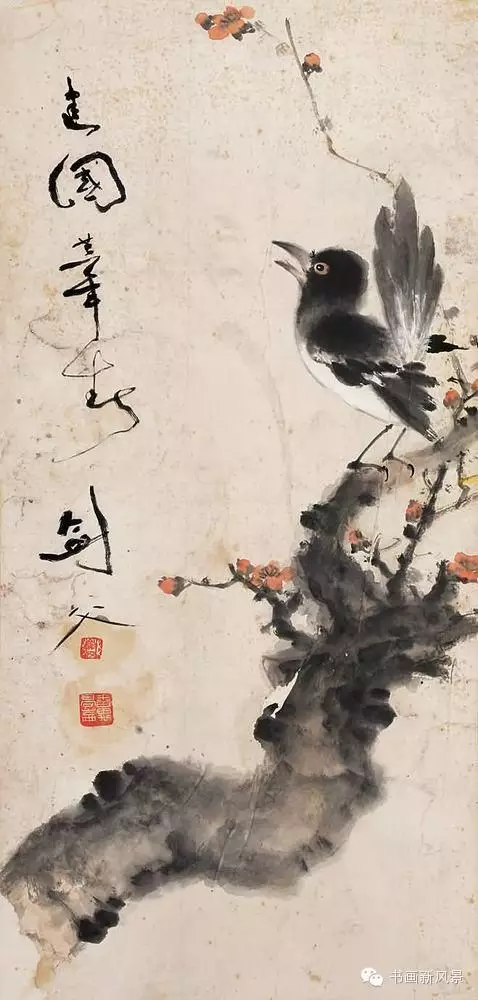 建國年春
劍父
书画新风景